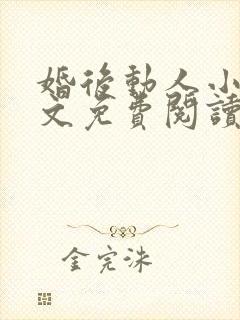 婚後動人小
文免費閱讀
金完洙